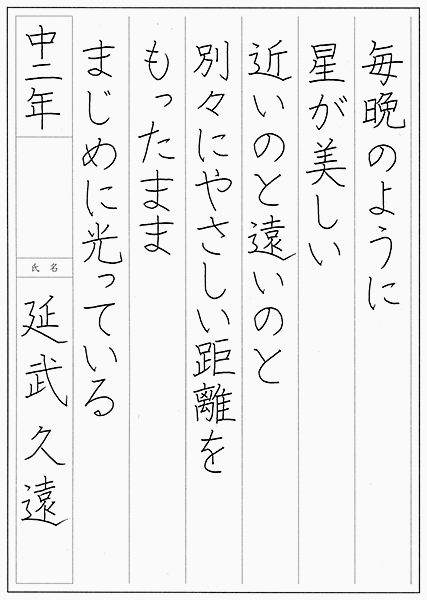 毎晩のように
星が美しい
近いのと遠いのと
別々にやさしい距離を
もったまま
まじめに光っている
中二年
氏名
延武久遠